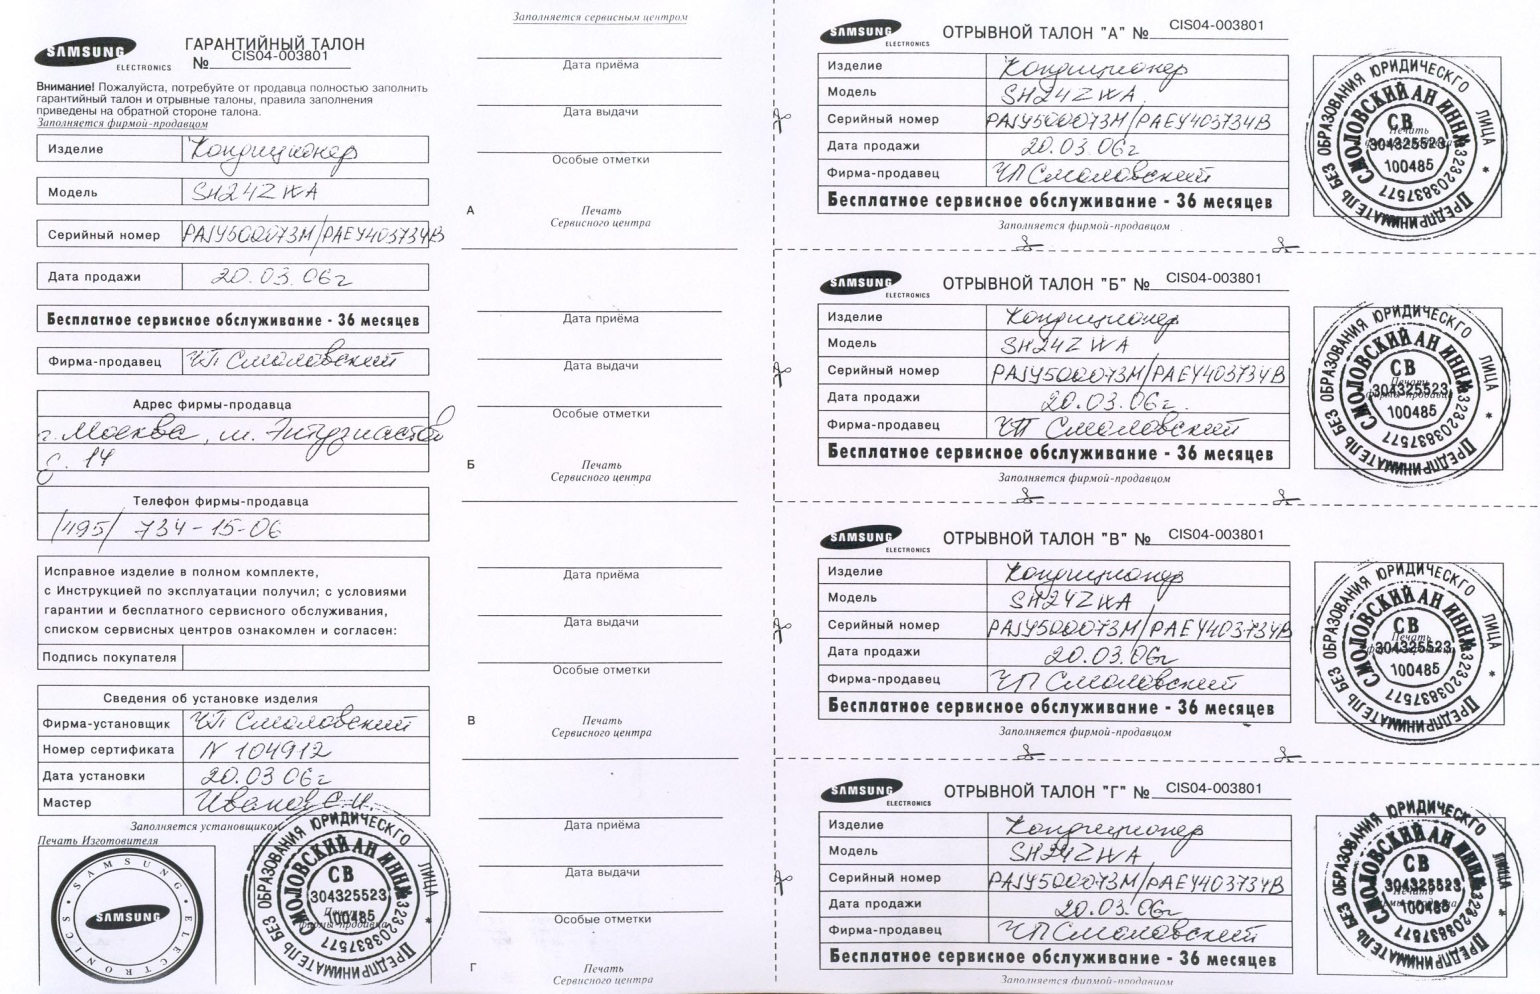 SAMSUNG
ELECTRONICS
ГАРАНТИЙНЫЙ ТАЛОН
№ CIS04-003801
Внимание! Пожалуйста, потребуйте от продавца полностью заполнить
гарантийный талон и отрывные талоны, правила заполнения
приведены на обратной стороне талона.
Заполняется фирмой-продавцом
Изделие Кондиционер
Модель SH24ZWA
Серийный номер PAJY500073M/PAEY403734B
Дата продажи 20.03.06г
Бесплатное сервисное обслуживание - 36 месяцев
Фирма-продавец ЧП Смоловский
Адрес фирмы-продавца
г. Москва, ш. Энтузиастов
д. 14
Телефон фирмы-продавца
/495/ 734-15-06
Исправное изделие в полном комплекте,
с Инструкцией по эксплуатации получил; с условиями
гарантии и бесплатного сервисного обслуживания,
списком сервисных центров ознакомлен и согласен:
Подпись покупателя
Сведения об установке изделия
Фирма-установщик ЧП Смоловский
Номер сертификата N 104912
Дата установки 20.03 06г
Мастер Иванов С.И.
Заполняется установщиком
Печать Изготовителя
SAMSUNG ELECTRONICS
SAMSUNG
ПРЕДПРИНИМАТЕЛЬ БЕЗ ОБРАЗОВАНИЯ ЮРИДИЧЕСКГО ЛИЦА *
СМОЛОВСКИЙ АН ИНН 323203837577
СВ
304325523
100485
Печать
фирмы-продавца
Заполняется сервисным центром
Дата приёма
Дата выдачи
Особые отметки
А
Печать
Сервисного центра
Дата приёма
Дата выдачи
Особые отметки
Б
Печать
Сервисного центра
Дата приёма
Дата выдачи
Особые отметки
В
Печать
Сервисного центра
Дата приёма
Дата выдачи
Особые отметки
Г
Печать
Сервисного центра
SAMSUNG
ELECTRONICS
ОТРЫВНОЙ ТАЛОН "А" № CIS04-003801
Изделие Кондиционер
Модель SH24ZWA
Серийный номер PAJY500073M/PAEY403734B
Дата продажи 20.03.06г
Фирма-продавец ЧП Смоловский
Бесплатное сервисное обслуживание - 36 месяцев
Заполняется фирмой-продавцом
ПРЕДПРИНИМАТЕЛЬ БЕЗ ОБРАЗОВАНИЯ ЮРИДИЧЕСКГО ЛИЦА *
СМОЛОВСКИЙ АН ИНН 323203837577
СВ
Печать
304325523
100485
SAMSUNG
ELECTRONICS
ОТРЫВНОЙ ТАЛОН "Б" № CIS04-003801
Изделие Кондиционер
Модель SH24ZWA
Серийный номер PAJY500073M/PAEY403734B
Дата продажи 20.03.06г.
Фирма-продавец ЧП Смоловский
Бесплатное сервисное обслуживание - 36 месяцев
Заполняется фирмой-продавцом
ПРЕДПРИНИМАТЕЛЬ БЕЗ ОБРАЗОВАНИЯ ЮРИДИЧЕСКГО ЛИЦА *
СМОЛОВСКИЙ АН ИНН 323203837577
СВ
Печать
304325523
фирмы-продавца
100485
SAMSUNG
ELECTRONICS
ОТРЫВНОЙ ТАЛОН "В" № CIS04-003801
Изделие Кондиционер
Модель SH24ZWA
Серийный номер PAJY500073M/PAEY403734B
Дата продажи 20.03.06г
Фирма-продавец ЧП Смоловский
Бесплатное сервисное обслуживание - 36 месяцев
Заполняется фирмой-продавцом
ПРЕДПРИНИМАТЕЛЬ БЕЗ ОБРАЗОВАНИЯ ЮРИДИЧЕСКГО ЛИЦА *
СМОЛОВСКИЙ АН ИНН 323203837577
СВ
Печать
304325523
100485
SAMSUNG
ELECTRONICS
ОТРЫВНОЙ ТАЛОН "Г" № CIS04-003801
Изделие Кондиционер
Модель SH24ZWA
Серийный номер PAJY500073M/PAEY403734B
Дата продажи 20.03.06г
Фирма-продавец ЧП Смоловский
Бесплатное сервисное обслуживание - 36 месяцев
Заполняется фирмой-продавцом
ПРЕДПРИНИМАТЕЛЬ БЕЗ ОБРАЗОВАНИЯ ЮРИДИЧЕСКГО ЛИЦА
СМОЛОВСКИЙ АН ИНН 323203837577
СВ
304325523
Печать
100485